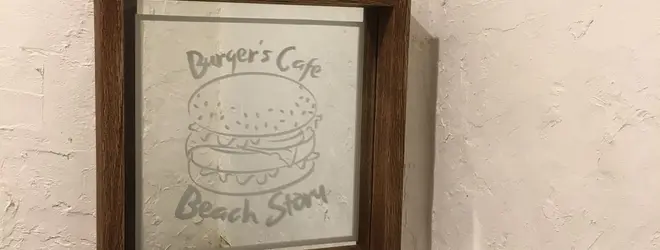 Burger's Cafe
Beach Story